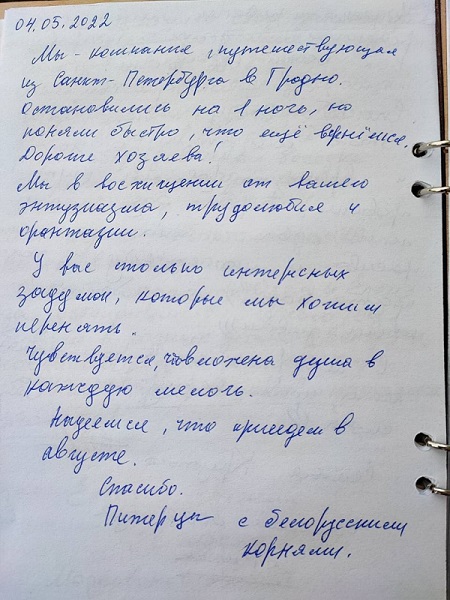 04.05.2022
Мы - компания, путешествующая
из Санкт-Петербурга в Гродно.
Остановились на 1 ночь, но
поняли быстро, что ещё вернёмся.
Дорогие хозяева!
Мы в восхищении от вашего
энтузиазма, трудолюбия и
фантазии.
У вас столько интересных
задумок, которые мы хотим
перенять.
Чувствуется, что вложена душа в
каждую мелочь.
Надеемся, что приедем в
августе.
Спасибо.
Питерцы с белорусскими
корнями.